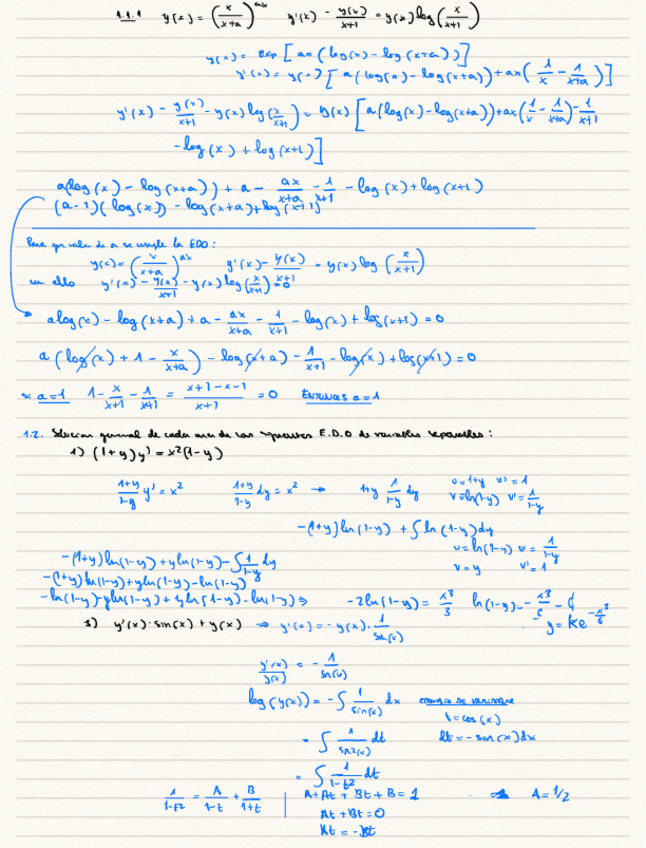 1.1.1 y(x) = (x/(x+a))^ax y'(x) - y(x)/(x+1) = y(x) log(x/(x+1))
y(x) = exp[ax(log(x) - log(x+a))]
y'(x) = y(x)[a(log(x) - log(x+a)) + ax(1/x - 1/(x+a))]
y'(x) - y(x)/(x+1) - y(x) log(x/(x+1)) = y(x)[a(log(x) - log(x+a)) + ax(1/x - 1/(x+a)) - 1/(x+1)
- log(x) + log(x+1)]
a(log(x) - log(x+a)) + a - ax/(x+a) - 1/(x+1) - log(x) + log(x+1)
(a-1)(log(x)) - log(x+a) + log(x+1)
Para que valor de a se cumple la EDO:
y(x) = (x/(x+a))^ax y'(x) - y(x)/(x+1) = y(x) log(x/(x+1))
y'(x) - y(x)/(x+1) - y(x) log(x/(x+1)) = 0
a log(x) - log(x+a) + a - ax/(x+a) - 1/(x+1) - log(x) + log(x+1) = 0
a(log(x) + 1 - x/(x+a)) - log(x+a) - 1/(x+1) - log(x) + log(x+1) = 0
a=1 1 - x/(x+1) - 1/(x+1) = (x+1-x-1)/(x+1) = 0 ENTONCES a=1
1.2. Solucion general de cada una de las siguientes E.D.O de variables separables:
1) (1+y)y' = x²(1-y)
(1+y)/(1-y) y' = x² (1+y)/(1-y) dy = x² → 1+y 1/(1-y) dy u=1+y u'=1
v=ln(1-y) v'=1/(1-y)
-(1+y)ln(1-y) + ∫ln(1-y)dy
u=ln(1-y) u=1/(1-y)
v=y v'=1
-(1+y)ln(1-y) + y ln(1-y) - ∫1/(1-y) dy
-(1+y)ln(1-y) + y ln(1-y) - ln(1-y)
-ln(1-y) - y ln(1-y) + y ln(1-y) - ln(1-y) ⇒ -2ln(1-y) = x³/3
y = ke^(-x³/6)
3) y'(x)·sin(x) + y(x) ⇒ y'(x) = -y(x)·1/sin(x)
y'(x)/y(x) = -1/sin(x)
log(y(x)) = -∫ 1/sin(x) dx
t=cos(x)
= ∫ 1/sin²(x) dt dt = -sin(x)dx
= ∫ 1/(1-t²) dt
1/(1-t²) = A/(1-t) + B/(1+t) A+At+Bt+B=1 A=1/2
At+Bt=0
At=-Bt